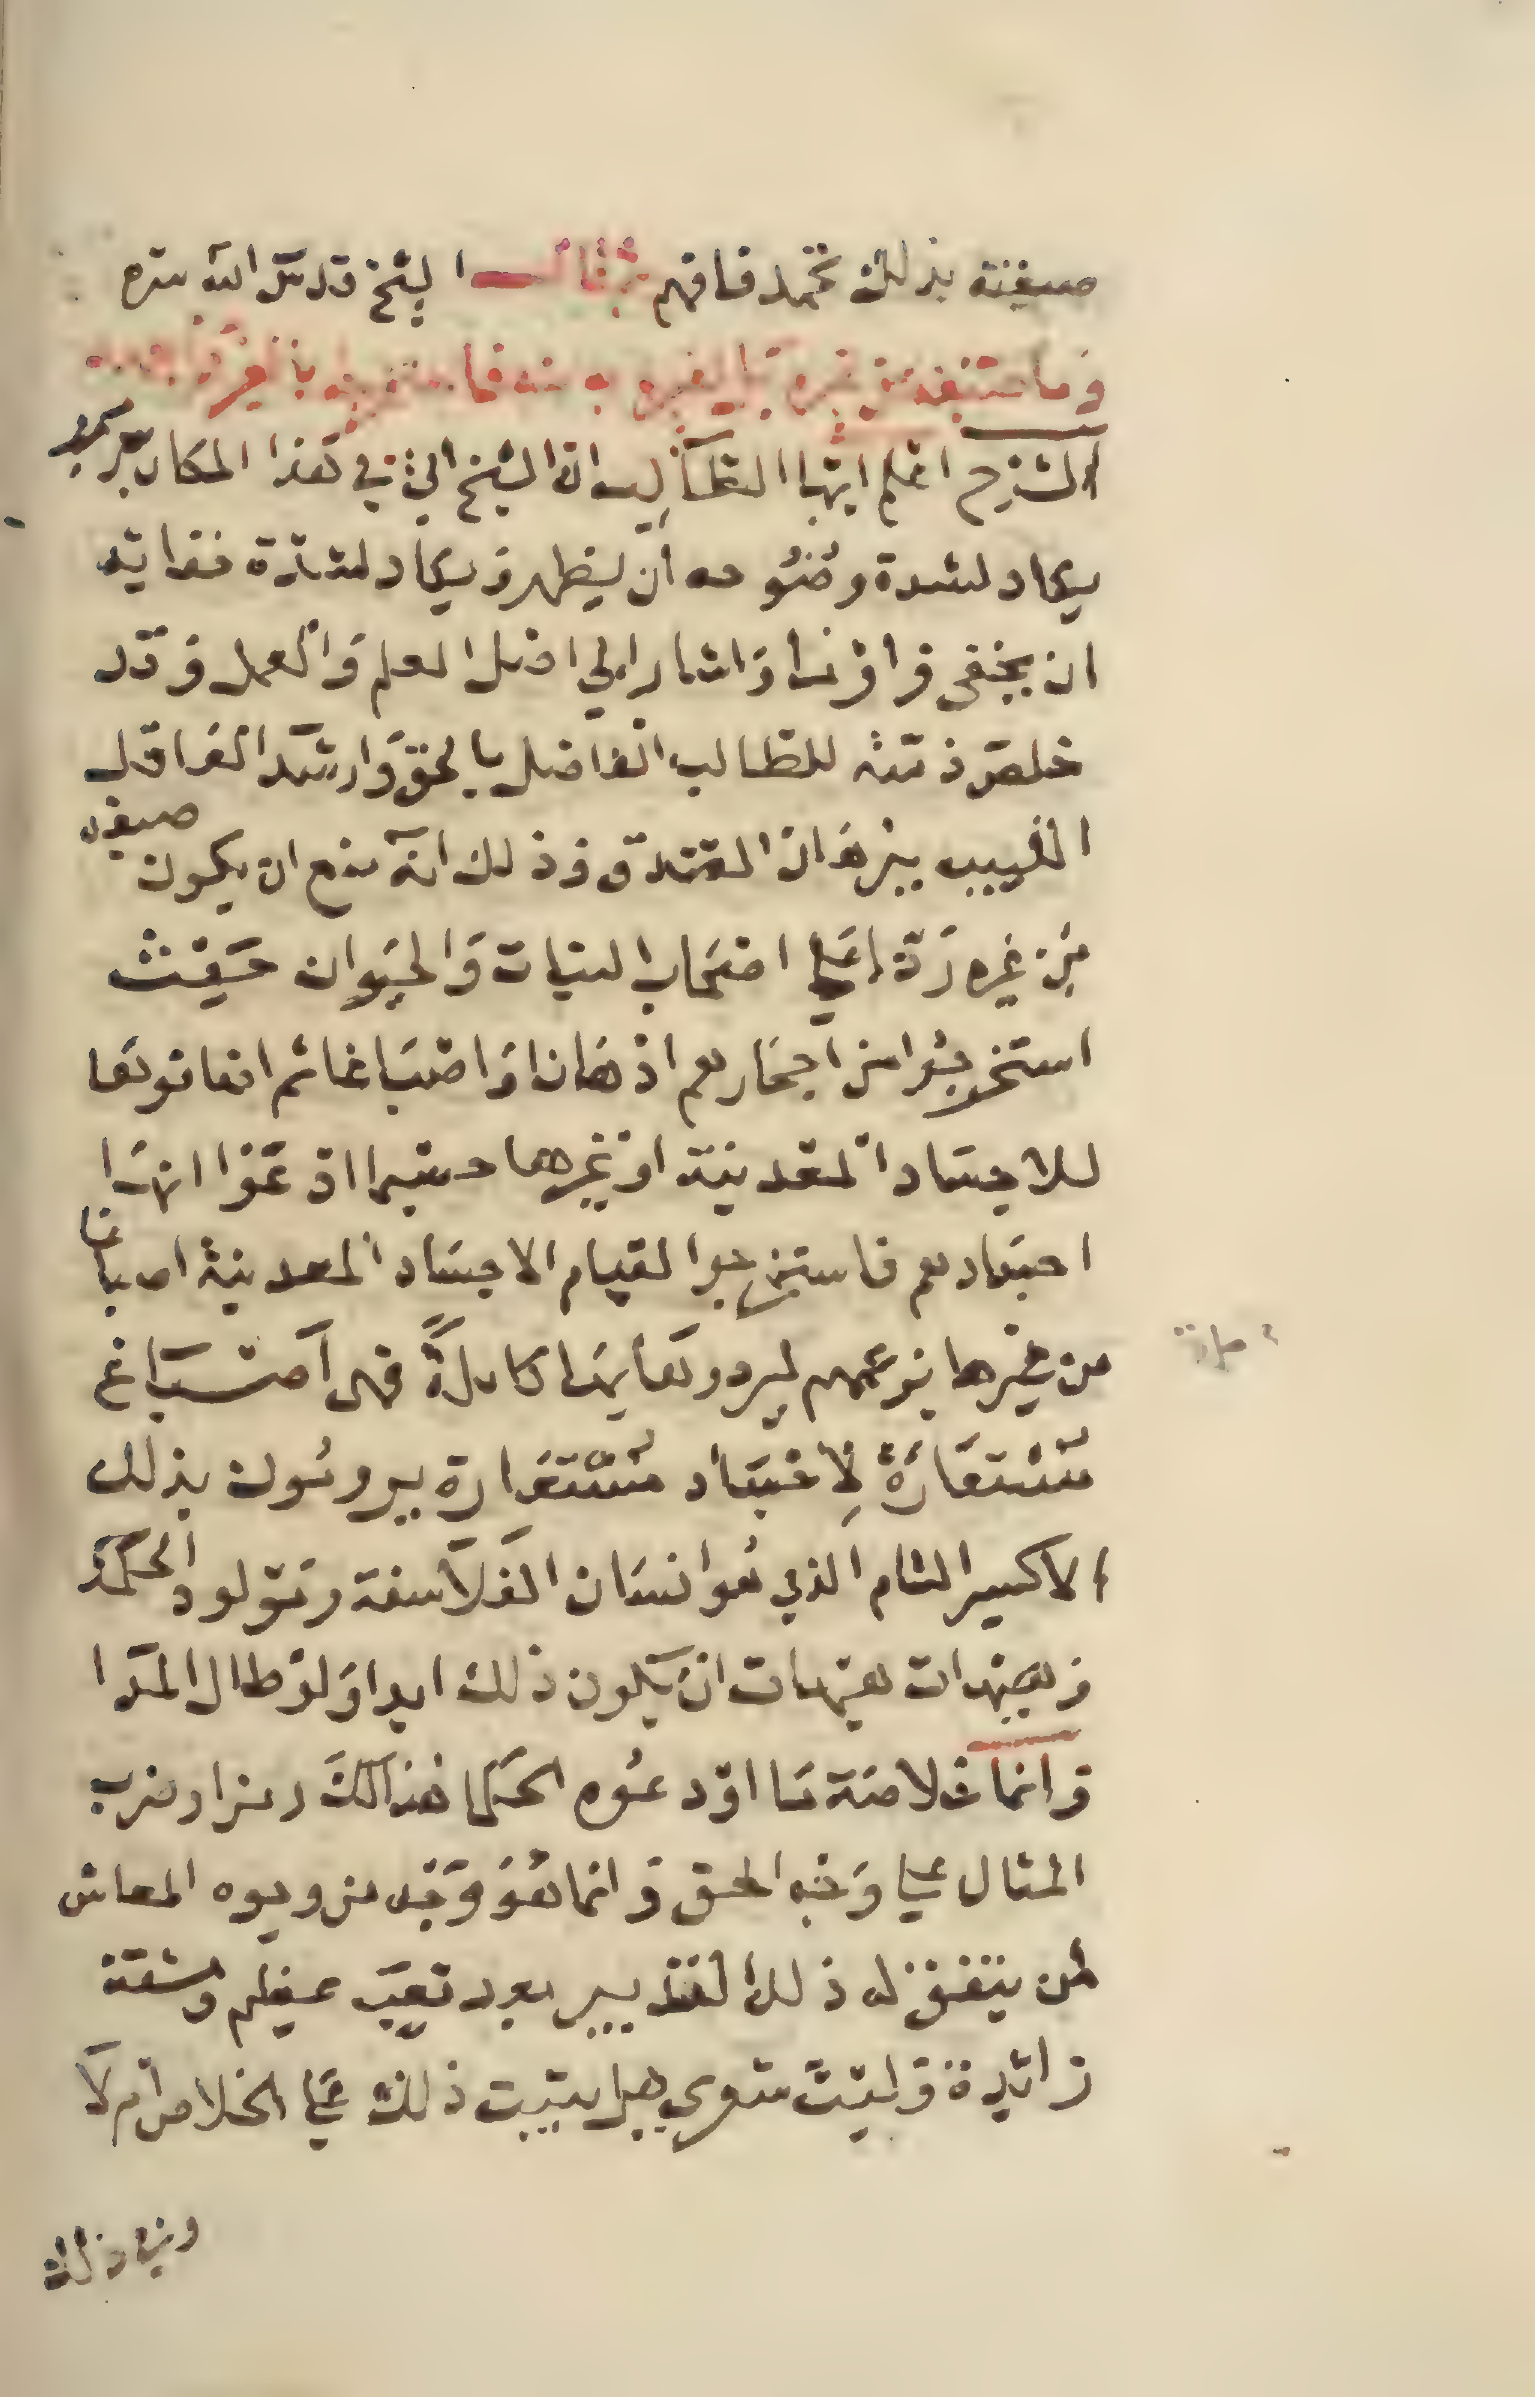 صبغته بذلك تحمد فافهم ثم قال الشيخ قدس الله سره
وما صبغه من غيره
الشرح اعلم ايها الطالب ان الشيخ اتي في هذا المكان برمز
يكاد لشدة وضوحه أن يظهر ويكاد لشدة خفايه
ان يخفى واومأ واشار الي اهل العلم والعمل وقد
خلص ذمته للطالب الفاضل بالحق وارشد العاقل
اللبيب ببرهان الصدق وذلك انه منع ان يكون صبغه
من غيره ردا علي اصحاب النبات والحيوان حيث
استخرجوا من احجارهم ادهانا واصباغا ثم
للاجساد المعدنية او غيرها حسبما ادعوا انها
اجسادهم فاستخرجوا لقيام الاجساد المعدنية اصباغا
من غيرها بزعمهم ليردوها بها كاملةً فهي أصباغ
مستعارة لاجساد مستعارة يرومون بذلك
الاكسير التام الذي هو انسان الفلاسفة ومولود الحكمة
وهيهات هيهات ان يكون ذلك ابدا ولو طال المدا
وانما خلاصة ما اودعوه الحكما هنالك رمزا وضرب
المثال علي وجه الحق وانما هو وجه من وجوه المعاش
لمن يتفق له ذلك التدبير بعد تعب عظيم ومشقة
زائدة وليت شعري هل يثبت ذلك علي الخلاص أم لا